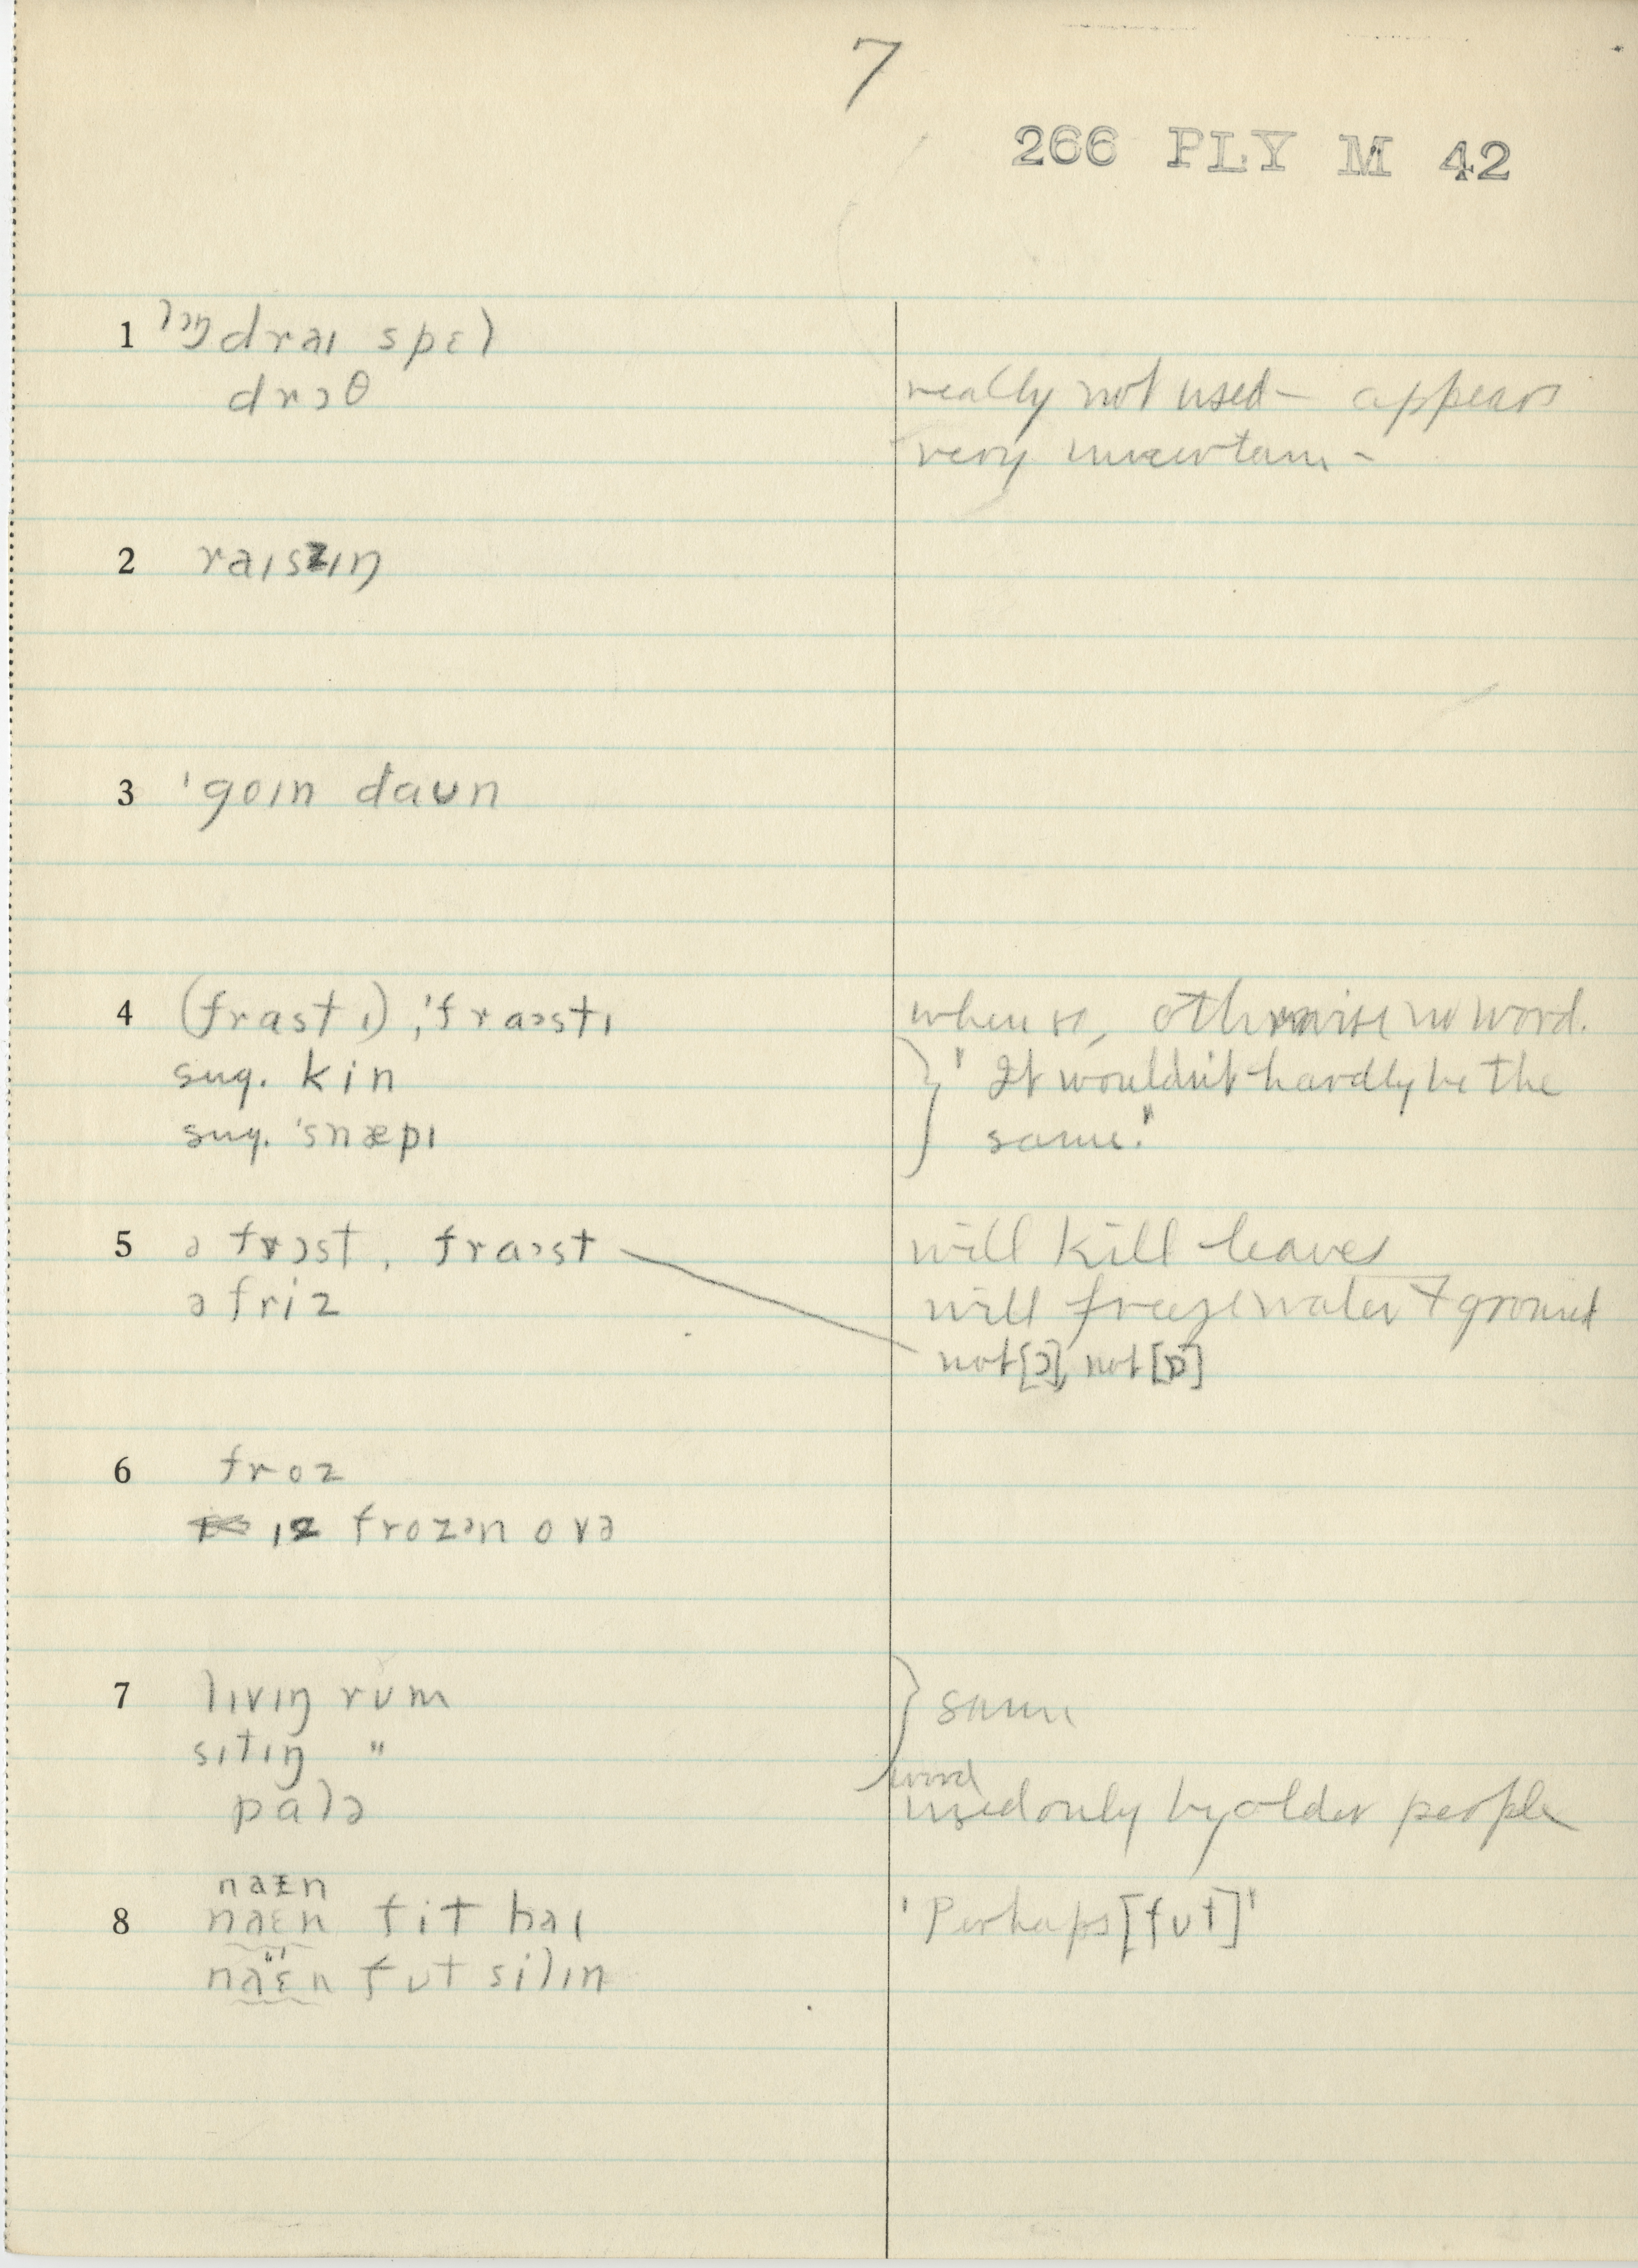 7
266 PLY M 42
1 lɔŋ draɪ spɛl
drɔθ
really not used — appears
very uncertain —
2 raɪszɪŋ
3 ˈgoɪn daʊn
4 (frastɪ), ˈfraɔstɪ
when so, otherwise no word.
sug. kin
" It wouldn't hardly be the
sug. ˈsnæpɪ
same."
5 ə frɔst, fraɔst
will kill leaves
ə friz
will freeze water + ground
not [ɔ], not [ɒ]
6 froz
ɪz frozən ovə
7 lɪvɪŋ rum
same
sɪtɪŋ "
word
palə
used only by older people
naɪn
8 naɛn fit haɪ
'Perhaps [fʊt]'
naɛn fʊt silɪn